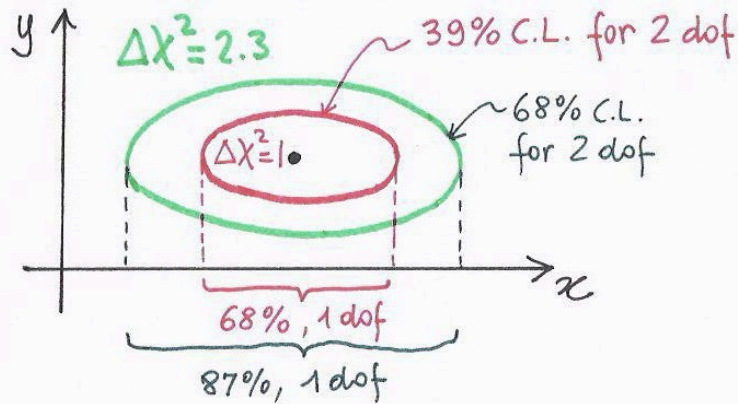 y
Δχ²=2.3
39% C.L. for 2 dof
68% C.L.
for 2 dof
Δχ²=1
x
68%, 1 dof
87%, 1 dof